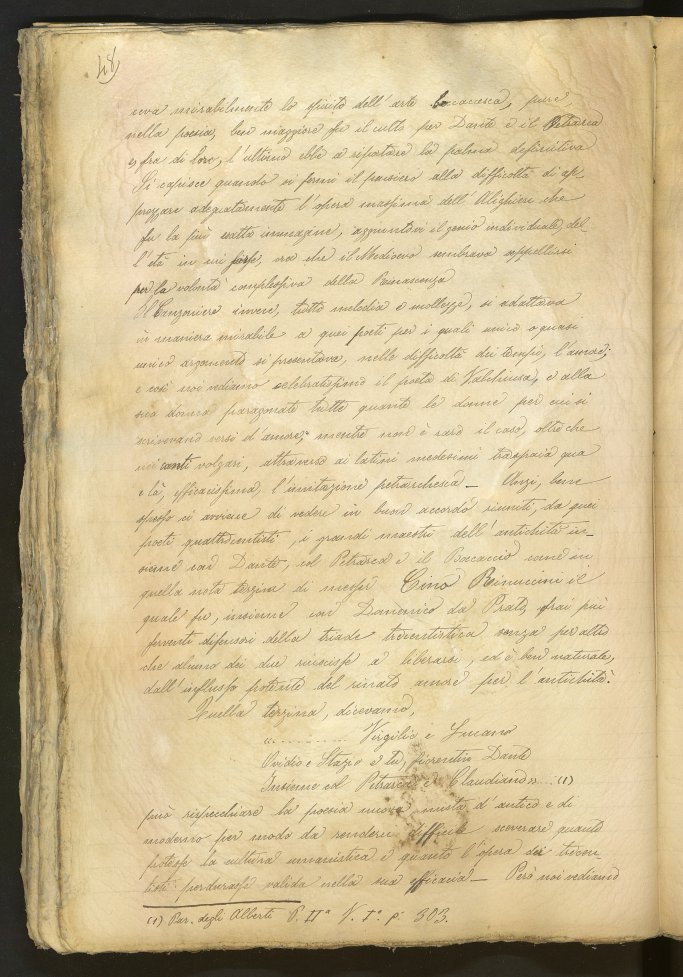 48)
ceva mirabilmente lo spirito dell'arte boccaccesca, pure,
nella poesia, ben maggiore fu il culto per Dante e il Petrarca
e, fra di loro, l'ultimo ebbe a riportare la palma definitiva.
Si capisce quando si fermi il pensiero alla difficoltà di ap-
prezzare adeguatamente l'opera massima dell'Alighieri che
fu la più esatta immagine, aggiuntovi il genio individuale, del-
l'età in cui sorse, ora che il Medioevo sembrava appellarsi
per la volontà complessiva della Rinascenza
Il Canzoniere invece, tutto melodia e mollezze, si adattava
in maniera mirabile a quei poeti per i quali unico o quasi
unico argomento si presentava, nelle difficoltà dei tempi, l'amore;
e così noi vediamo celebratissimo il poeta di Valchiusa, e alla
sua donna paragonate tutte quante le donne per cui si
scrivevano versi d'amore; mentre non è raro il caso, oltre che
nei canti volgari, attraverso ai latini medesimi traspaia qua
e là, efficacissima, l'imitazione petrarchesca — Anzi, bene
spesso ci avviene di vedere in buon accordo riuniti, da quei
poeti quattrocentisti, i grandi maestri dell'antichità in-
sieme con Dante, col Petrarca e il Boccaccio come in
quella nota terzina di messer Cino Rinuccini il
quale fu, insieme con Domenico da Prato, frai più
ferventi difensori della triade trecentistica senza per altro
che alcuno dei due riuscisse a liberarsi, ed è ben naturale,
dall'influsso potente del rinato amore per l'antichità.
Quella terzina, dicevamo,
"........... Virgilio e Lucano
Ovidio e Stazio e tu, fiorentin Dante
Insieme col Petrarca e Claudiano".... (1)
può rispecchiare la poesia nuova, mista d'antico e di
moderno per modo da rendere difficile sceverare quanto
potesse la cultura umanistica e quanto l'opera dei trecen-
tisti perdurasse valida nella sua efficacia — Però noi vediamo
(1) Par. degli Alberti P. IIª V. Iº. p. 303.